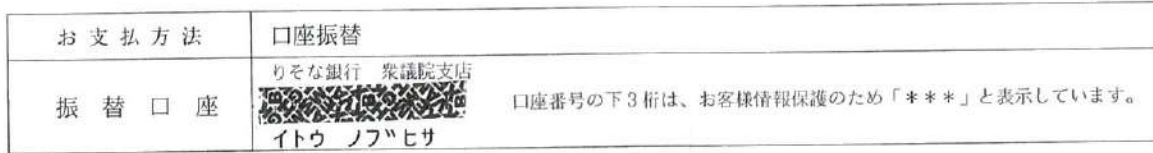 お支払方法 口座振替
りそな銀行 衆議院支店
振替口座 口座番号の下3桁は、お客様情報保護のため「＊＊＊」と表示しています。
イトウ ノブヒサ